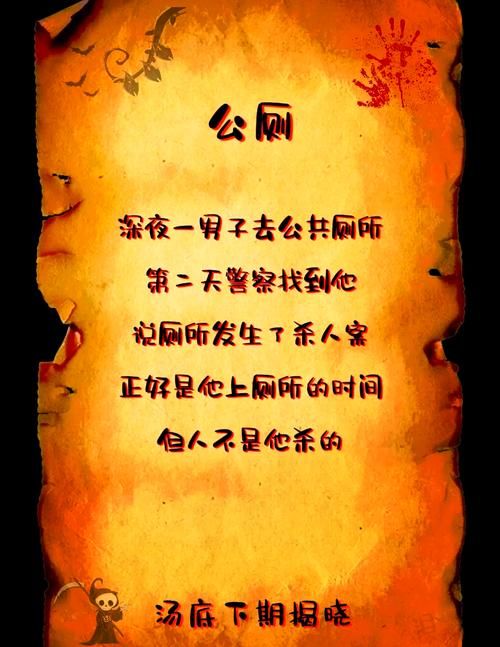 公厕
深夜一男子去公共厕所
第二天警察找到他
说厕所发生了杀人案
正好是他上厕所的时间
但人不是他杀的
汤底下期揭晓